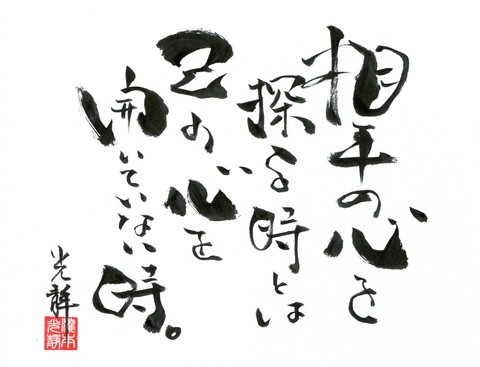 相手の心を
探る時とは
己の心を
開いていない時。
光祥